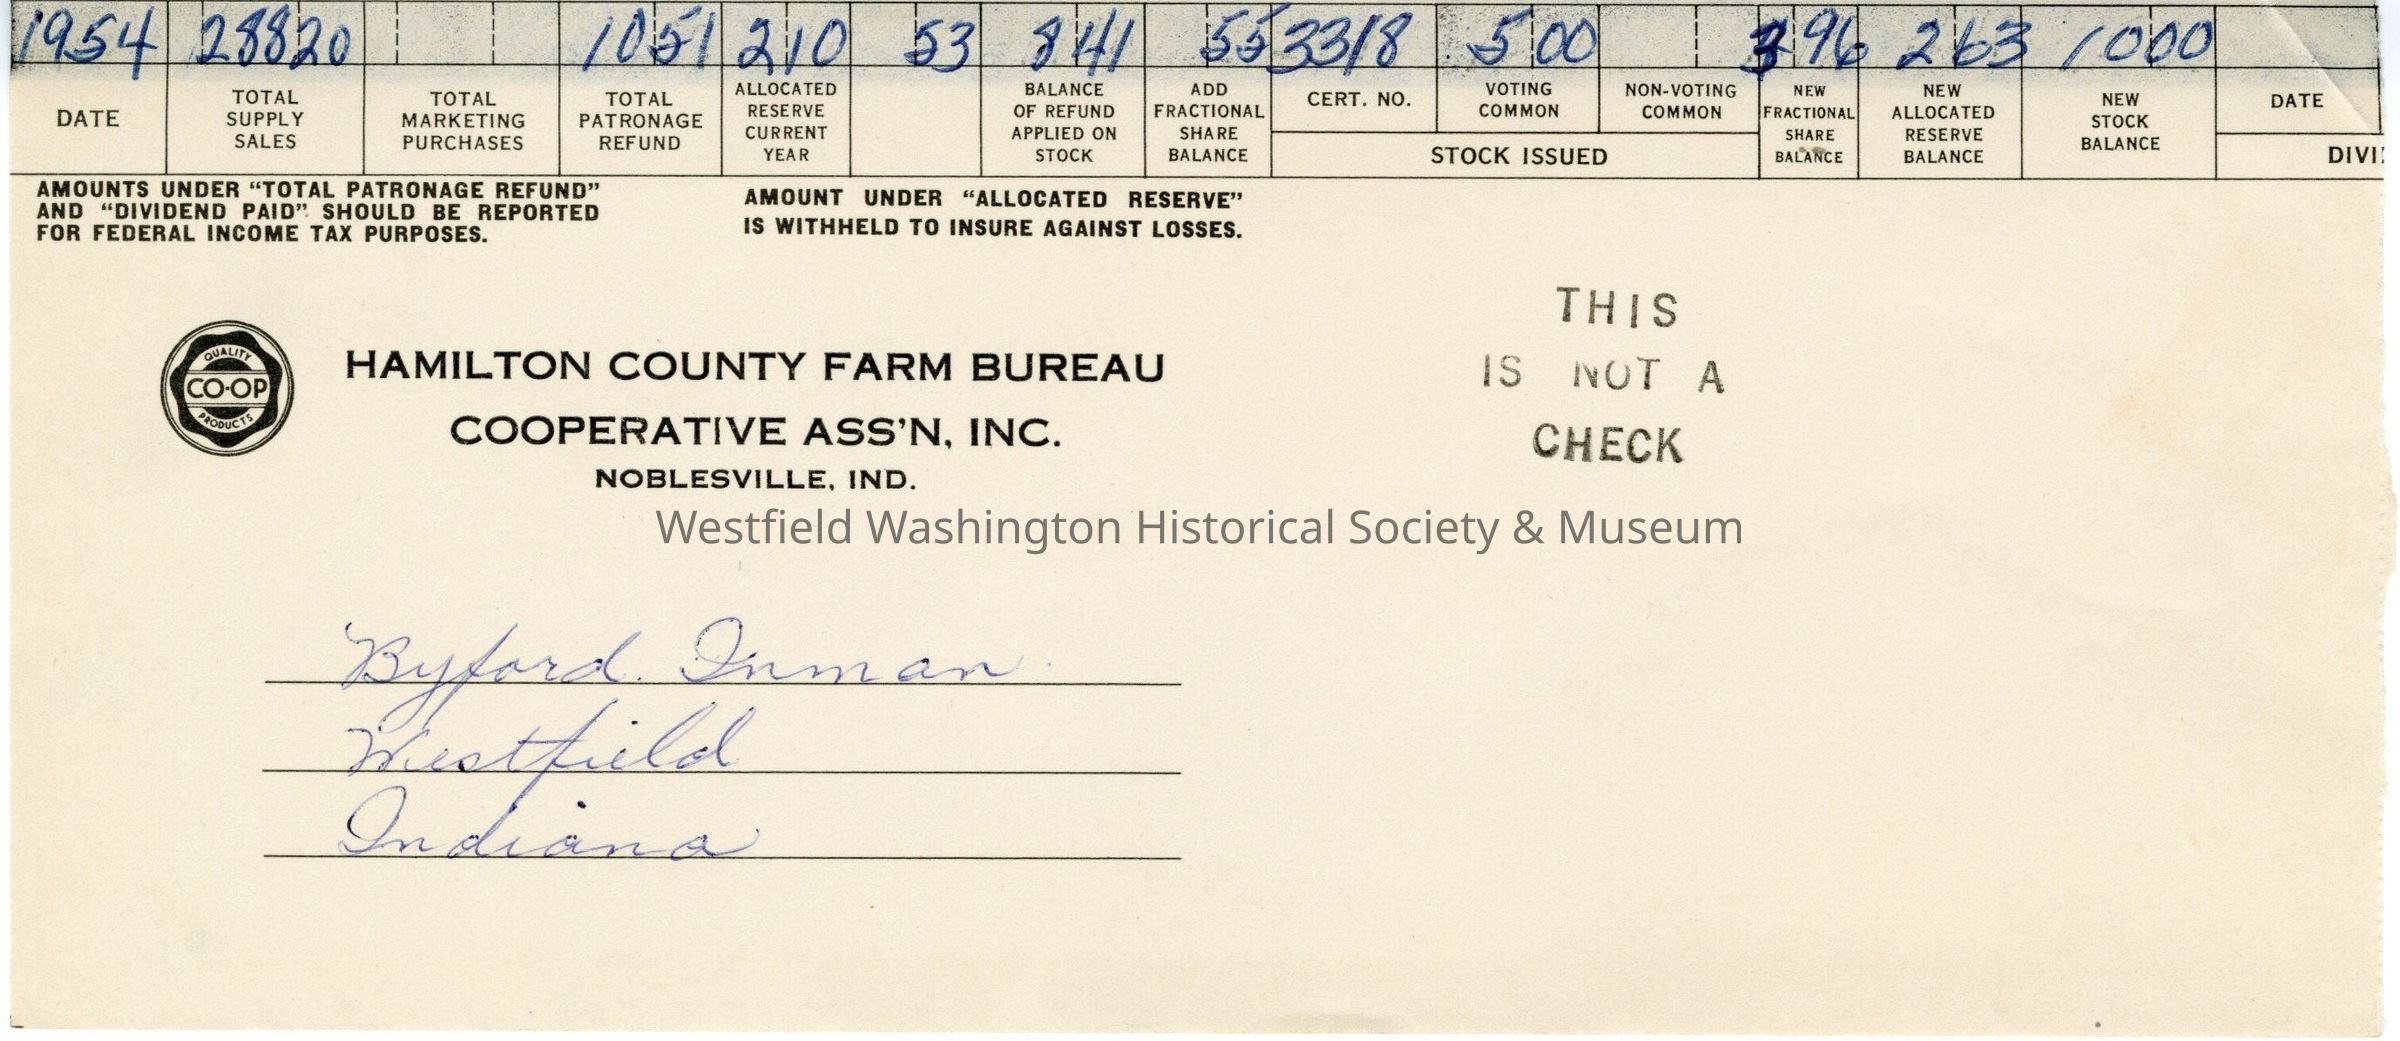 1954 28820 1051 210 53 841 55 3318 500 396 263 1000
DATE
TOTAL SUPPLY SALES
TOTAL MARKETING PURCHASES
TOTAL PATRONAGE REFUND
ALLOCATED RESERVE CURRENT YEAR
BALANCE OF REFUND APPLIED ON STOCK
ADD FRACTIONAL SHARE BALANCE
CERT. NO.
VOTING COMMON
NON-VOTING COMMON
STOCK ISSUED
NEW FRACTIONAL SHARE BALANCE
NEW ALLOCATED RESERVE BALANCE
NEW STOCK BALANCE
DATE
DIVI
AMOUNTS UNDER “TOTAL PATRONAGE REFUND”
AND “DIVIDEND PAID” SHOULD BE REPORTED
FOR FEDERAL INCOME TAX PURPOSES.
AMOUNT UNDER “ALLOCATED RESERVE”
IS WITHHELD TO INSURE AGAINST LOSSES.
THIS
IS NOT A
CHECK
QUALITY
CO-OP
PRODUCTS
HAMILTON COUNTY FARM BUREAU
COOPERATIVE ASS'N, INC.
NOBLESVILLE, IND.
Westfield Washington Historical Society & Museum
Byford Inman
Westfield
Indiana